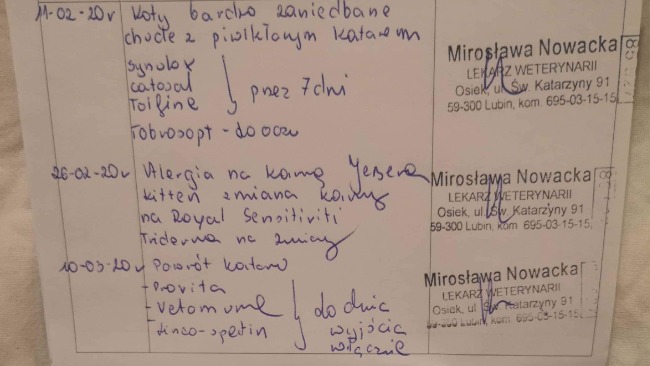 11-02-20r Koty bardzo zaniedbane
chude z powikłanym katarem
Synulox
catosal
Tolfine
} przez 7 dni
Tobrosopt - do oczu
Mirosława Nowacka
LEKARZ WETERYNARII
Osiek, ul. Św. Katarzyny 91
59-300 Lubin, kom. 695-03-15-15
26-02-20r Alergia na karmę Jesera
kitten zmiana karmy
na Royal Sensitiviti
Triderma na zmiany
Mirosława Nowacka
LEKARZ WETERYNARII
Osiek, ul. Św. Katarzyny 91
59-300 Lubin, kom. 695-03-15-15
10-03-20r Powrót kataru
- Provita
- Vetomune
- Linco-spectin
} do dnia
wyjścia
włącznie
Mirosława Nowacka
LEKARZ WETERYNARII
Osiek, ul. Św. Katarzyny 91
59-300 Lubin, kom. 695-03-15-15